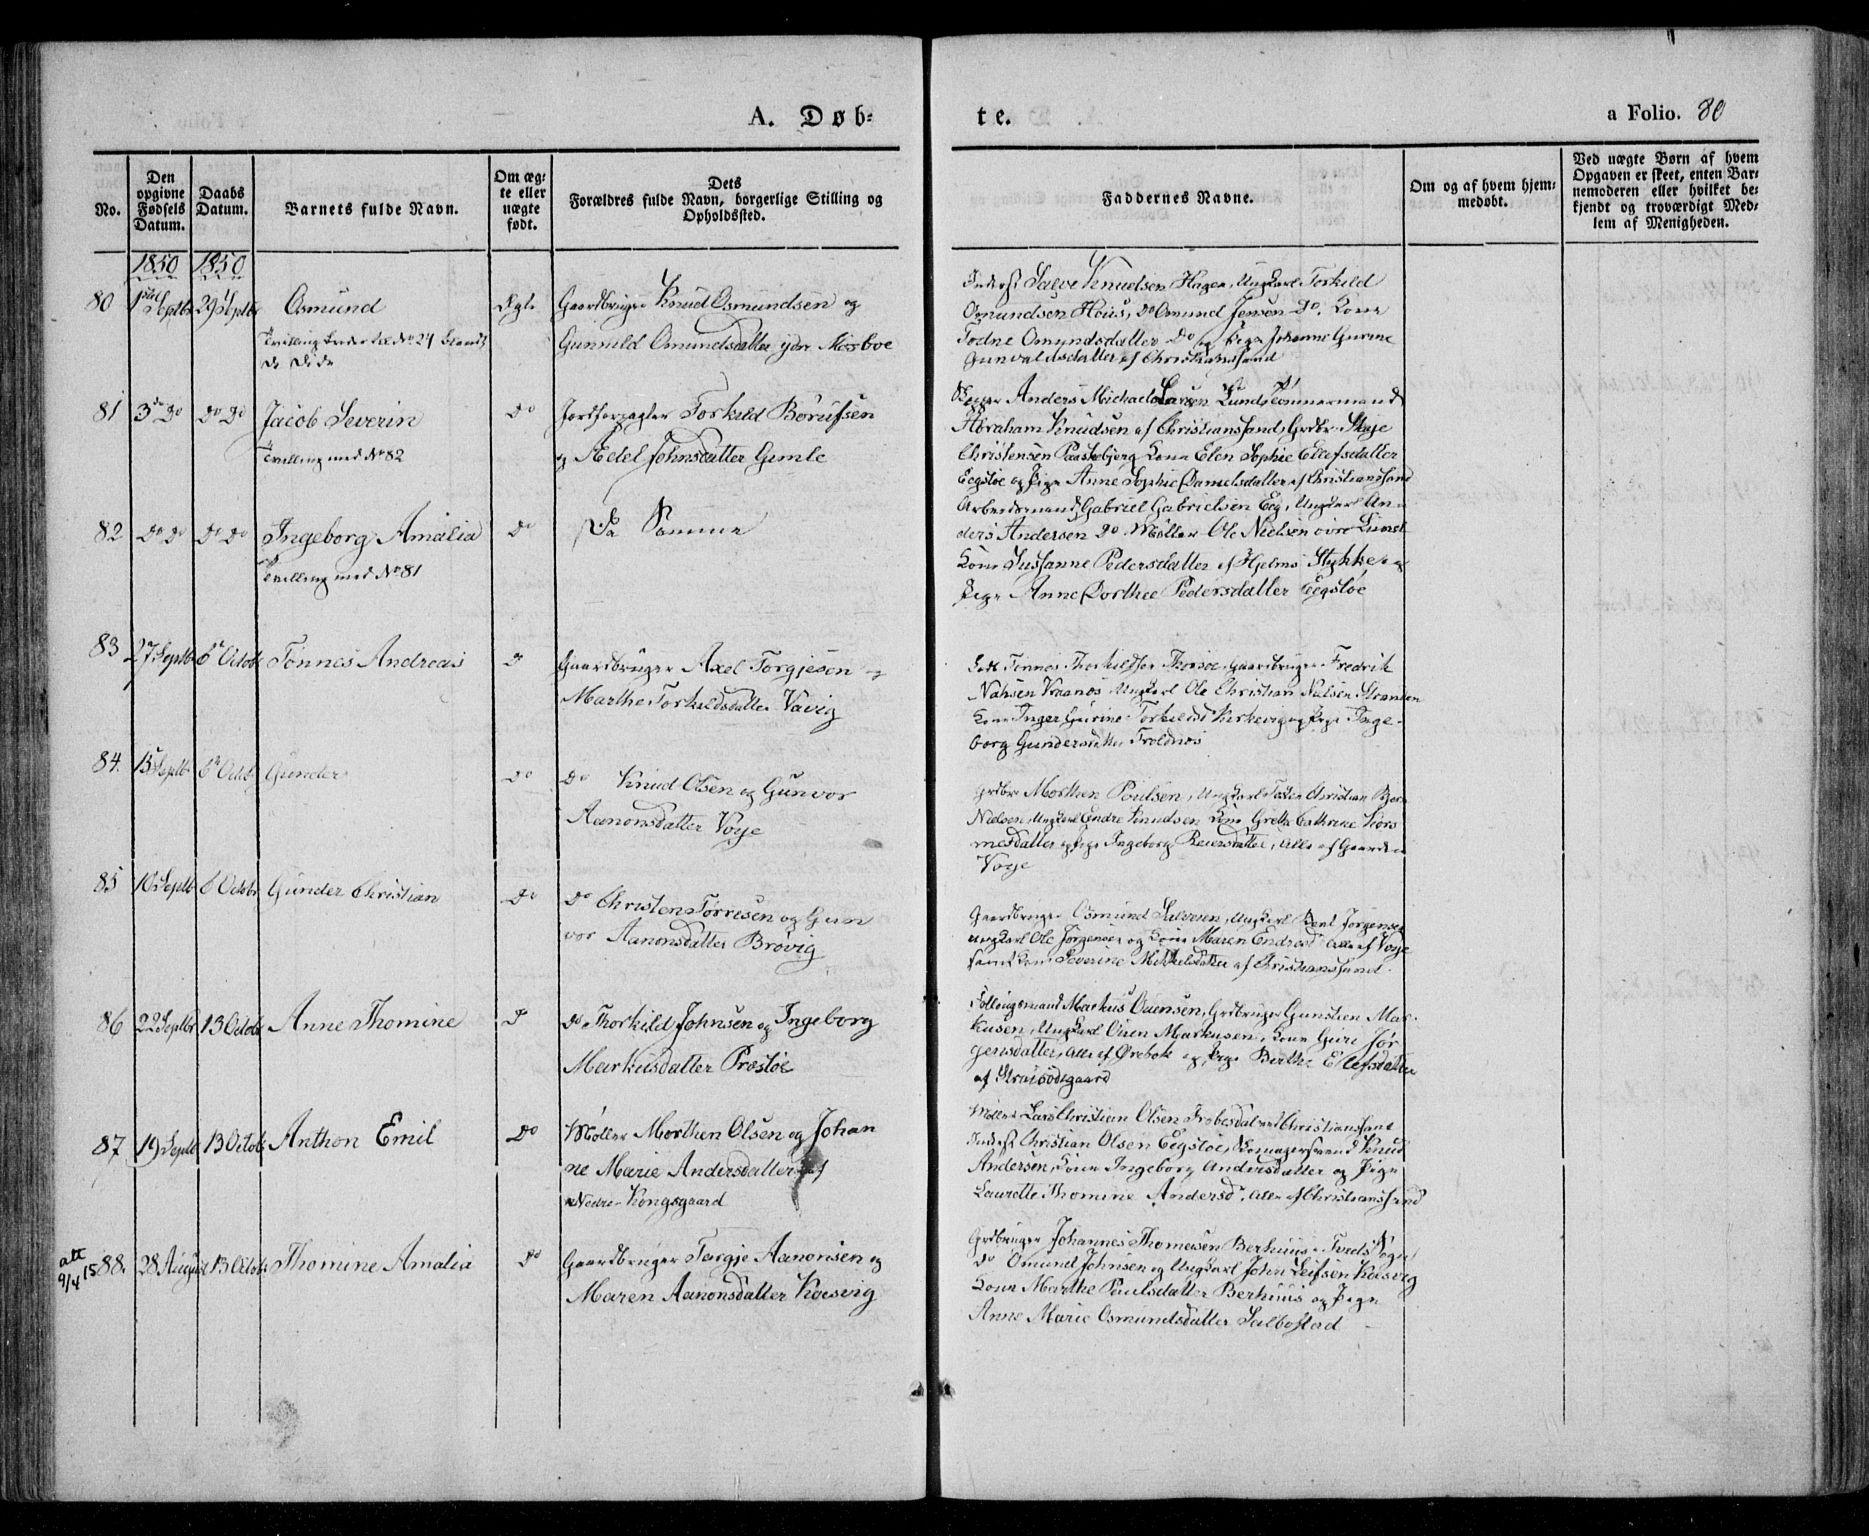 A. Døb-
te.
a Folio. 80
No.
Den opgivne Fødsels Datum.
Daabs Datum.
Barnets fulde Navn.
Om æg-te eller uægte født.
Dets Forældres fulde Navn, borgerlige Stilling og Opholdssted.
Faddernes Navne.
Om og af hvem hjem-medøbt.
Ved uægte Børn af hvem Opgaven er skeet, enten Bar-nemoderen eller hvilket be-kjendt og troværdigt Med-lem af Menigheden.
1850 1850
80 1 Septbr 29 Septbr Osmund Ægte Gaardbruger Knud Osmundsen og
No 24
Gunnild Omundsdatter ydre Mosboe
Salve Knudsen Hagen, Ungkarl Torkild
Omundsen Hous, Do Omund Jensen Do, Kone
Todne Omundsdatter Do og Pige Johanne Gurine
Gunvaldsdatter af Christianssand
81 3 Do Do Do Jacob Severin Do Torkild Børufsen
Tvilling med No 82
og Aedel Johnsdatter Gimle
Anders Michael Larsen Lund, Tømmermand
Abraham Knudsen af Christianssand, Grdbr.
Christensen Kone Elen Sophie Ellefsdatter
Eegsløe og Pige Anne Sophie Danielsdatter af Christianssand
82 Do Do Do Do Ingeborg Amalia Do De Samme
Tvilling med No 81
Arbeidsmand Gabriel Gabrielsen Eeg, Ungkarl An-
ders Andersen Do Møller Ole Nielsen øvre Lund
Kone Susanne Pedersdatter af Hjelms Stykke og
Pige Anne Dorthee Pedersdatter Eegsløe
83 27 Septbr 6 Octob Tønnes Andreas Do Gaardbruger Axel Torgjesen og
Marthe Torkildsdatter Vavig
Gaardbruger Fredrik
Ungkarl Ole Christian Nielsen Stranden
Kone Inger Gurine og Pige Inge-
borg Gundersdatter Troldnes
84. 15 Septbr 6 Octob Gunder Do Do Knud Olsen og Gunvor
Aanonsdatter Voje
Grdbr Morthen Poulsen, Ungkarl
Nielsen, Ungkarl Endre Knudsen Kone Grethe Cathrine
Pige Ingeborg Reiersdatter, Alle af Gaarden
Voje
85 10 Septb 6 Octobr Gunder Christian Do Do Christen Tørresen og Gun
vor Aanonsdatter Brøvig
Gaardbruger Osmund Salvesen, Ungkarl Bent Jørgensen
Ungkarl Ole Jørgensen og Kone Maren Endresd Alle af Voje
samt Kone Severine Mikkelsdatter af Christianssand.
86 22 Septbr 13 Octob Anne Thomine Do Do Thorkild Johnsen og Ingeborg
Markusdatter Præstøe
Markus Ouensen, Grdbruger Gunsten Mar-
kusen, Ungkarl Ouen Markusen, Kone Guri Jør
gensdatter, Alle af Ørebok og Pige Berthe Ellefsdatter
af
87 19 Septb 13 Octob Anthon Emil Do Møller Morthen Olsen og Johan
ne Marie Andersdatter af
Nedre Kongsgaard
Møller Lars Christian Olsen Christianssand
Christian Olsen Eegsløe, Knud
Andersen, Kone Ingeborg Andersdatter og Pige
Laurette Thomine Andersd, Alle af Christianssand
att
9/4 15
88. 28 August 13 Octob Thomine Amalia Do Gaardbruger Targje Aanonsen og
Maren Aanonsdatter Kosvig
Grdbruger Johannes Thomesen Berhuus Tveds Sogn
Do Omund Johnsen og Ungkarl John Leifsen Kosvig
Kone Marthe Paulsdatter Berhuus og Pige
Anne Marie Osmundsdatter